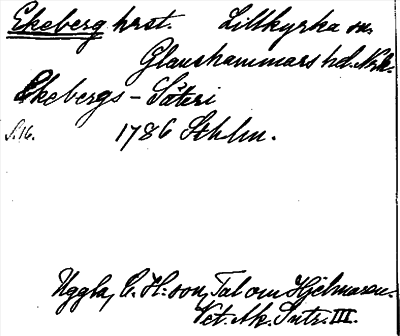 Ekeberg hrst. Lillkyrka sn.
Glanshammars hd. Nrk.
Ekebergs-Säteri
S.16. 1786 Sthlm.
Uggla, C. H:son, Tal om Hjelmaren.
Vet. Ak. Intr. III.